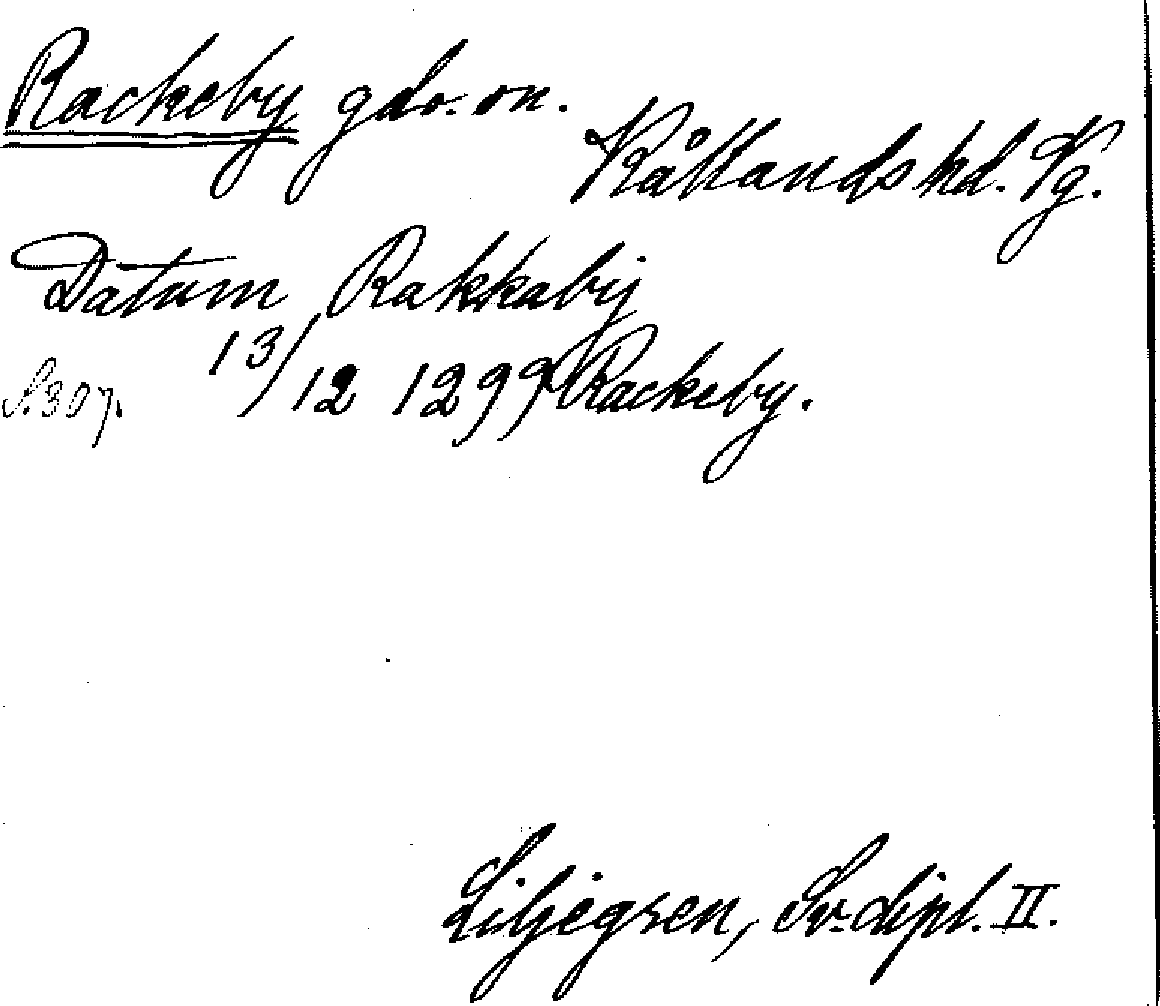 Rackeby gds. on.
Kållands hd. Vg.
Datum Rakkaby
S. 307. 13/12 1299 Rackeby.
Liljegren, Sv. dipl. II.